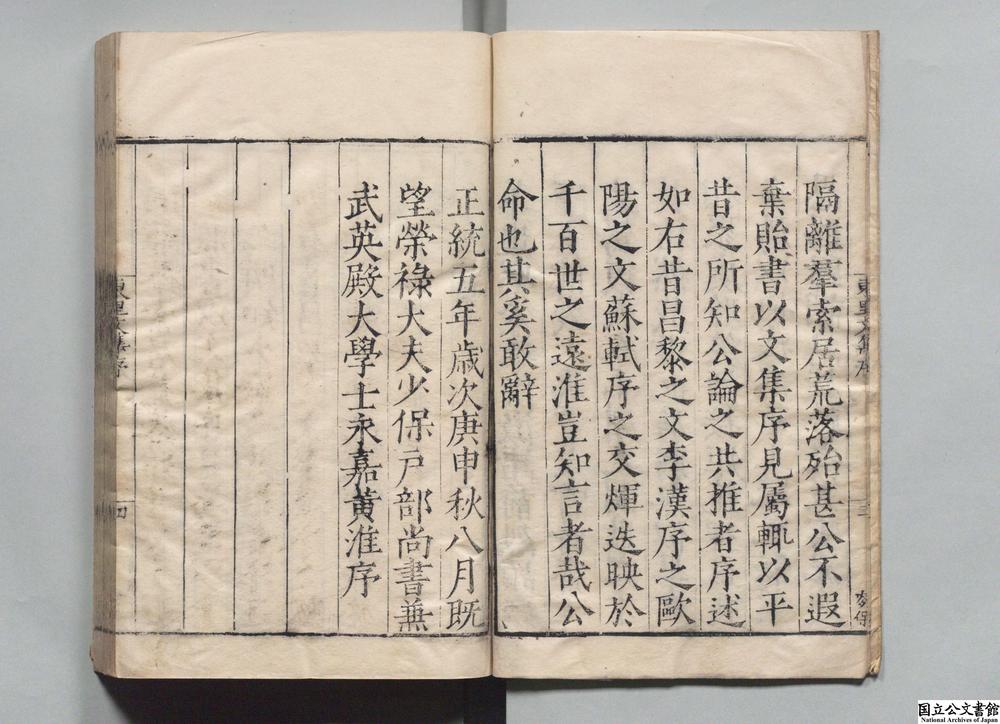 隔離羣索居荒落殆甚公不遐
棄貽書以文集序見屬輒以平
昔之所知公論之共推者序述
如右昔昌黎之文李漢序之歐
陽之文蘇軾序之交煇迭映於
千百世之遠淮豈知言者哉公
命也其奚敢辭
正統五年歳次庚申秋八月既
望榮祿大夫少保戸部尚書兼
武英殿大學士永嘉黃淮序
四
国立公文書館
National Archives of Japan